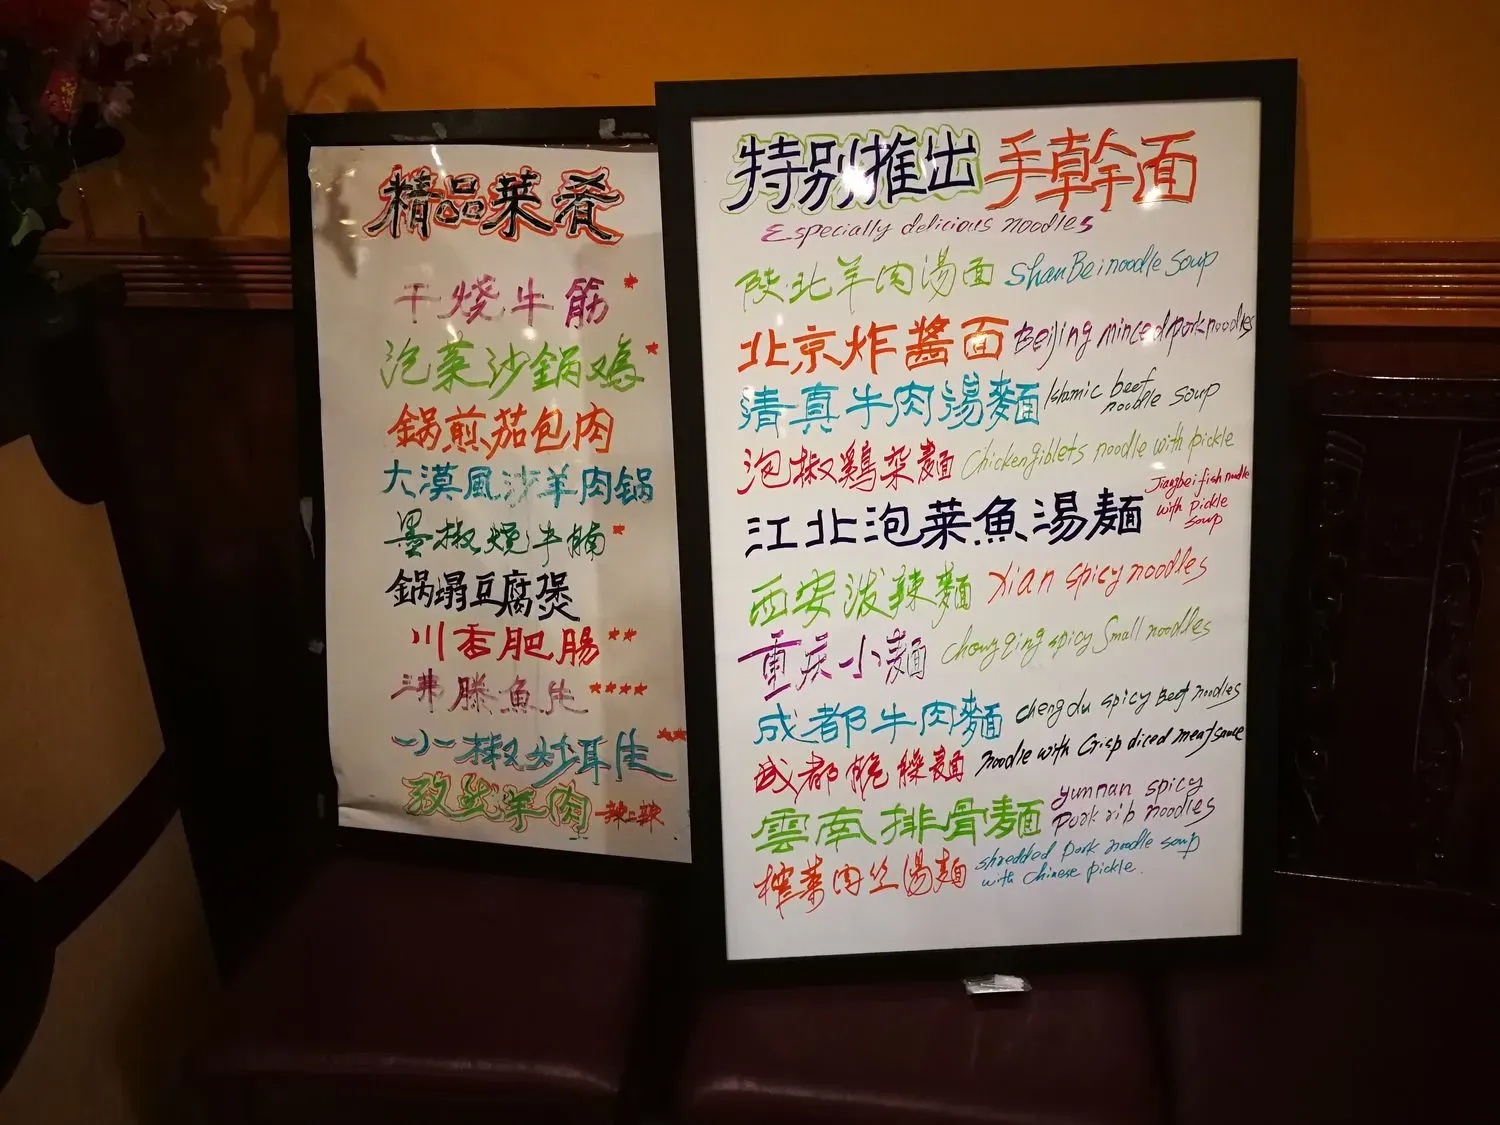 精品菜肴
干燒牛筋*
泡菜沙鍋鸡*
鍋煎茄包肉
大漠風沙羊肉锅
墨椒燒牛腩*
鍋塌豆腐煲
川香肥腸**
沸滕魚生****
小椒炒耳生**
孜然羊肉
特别推出 手幹面
Especially delicious noodles
陕北羊肉湯面 ShanBei noodle soup
北京炸醬面 Beijing minced pork noodles
清真牛肉湯麵 Islamic beef noodle soup
泡椒鷄杂麵 Chicken giblets noodle with pickle
江北泡菜魚湯麵 Jiangbei fish noodle with pickle soup
西安泼辣麵 Xian spicy noodles
重庆小麵 Chongqing spicy Small noodles
成都牛肉麵 Chengdu spicy Beef noodles
成都脆燥麵 Noodle with Crisp diced meat sauce
雲南排骨麵 yunnan spicy pork rib noodles
榨菜肉丝湯麵 shredded pork noodle soup with chinese pickle.